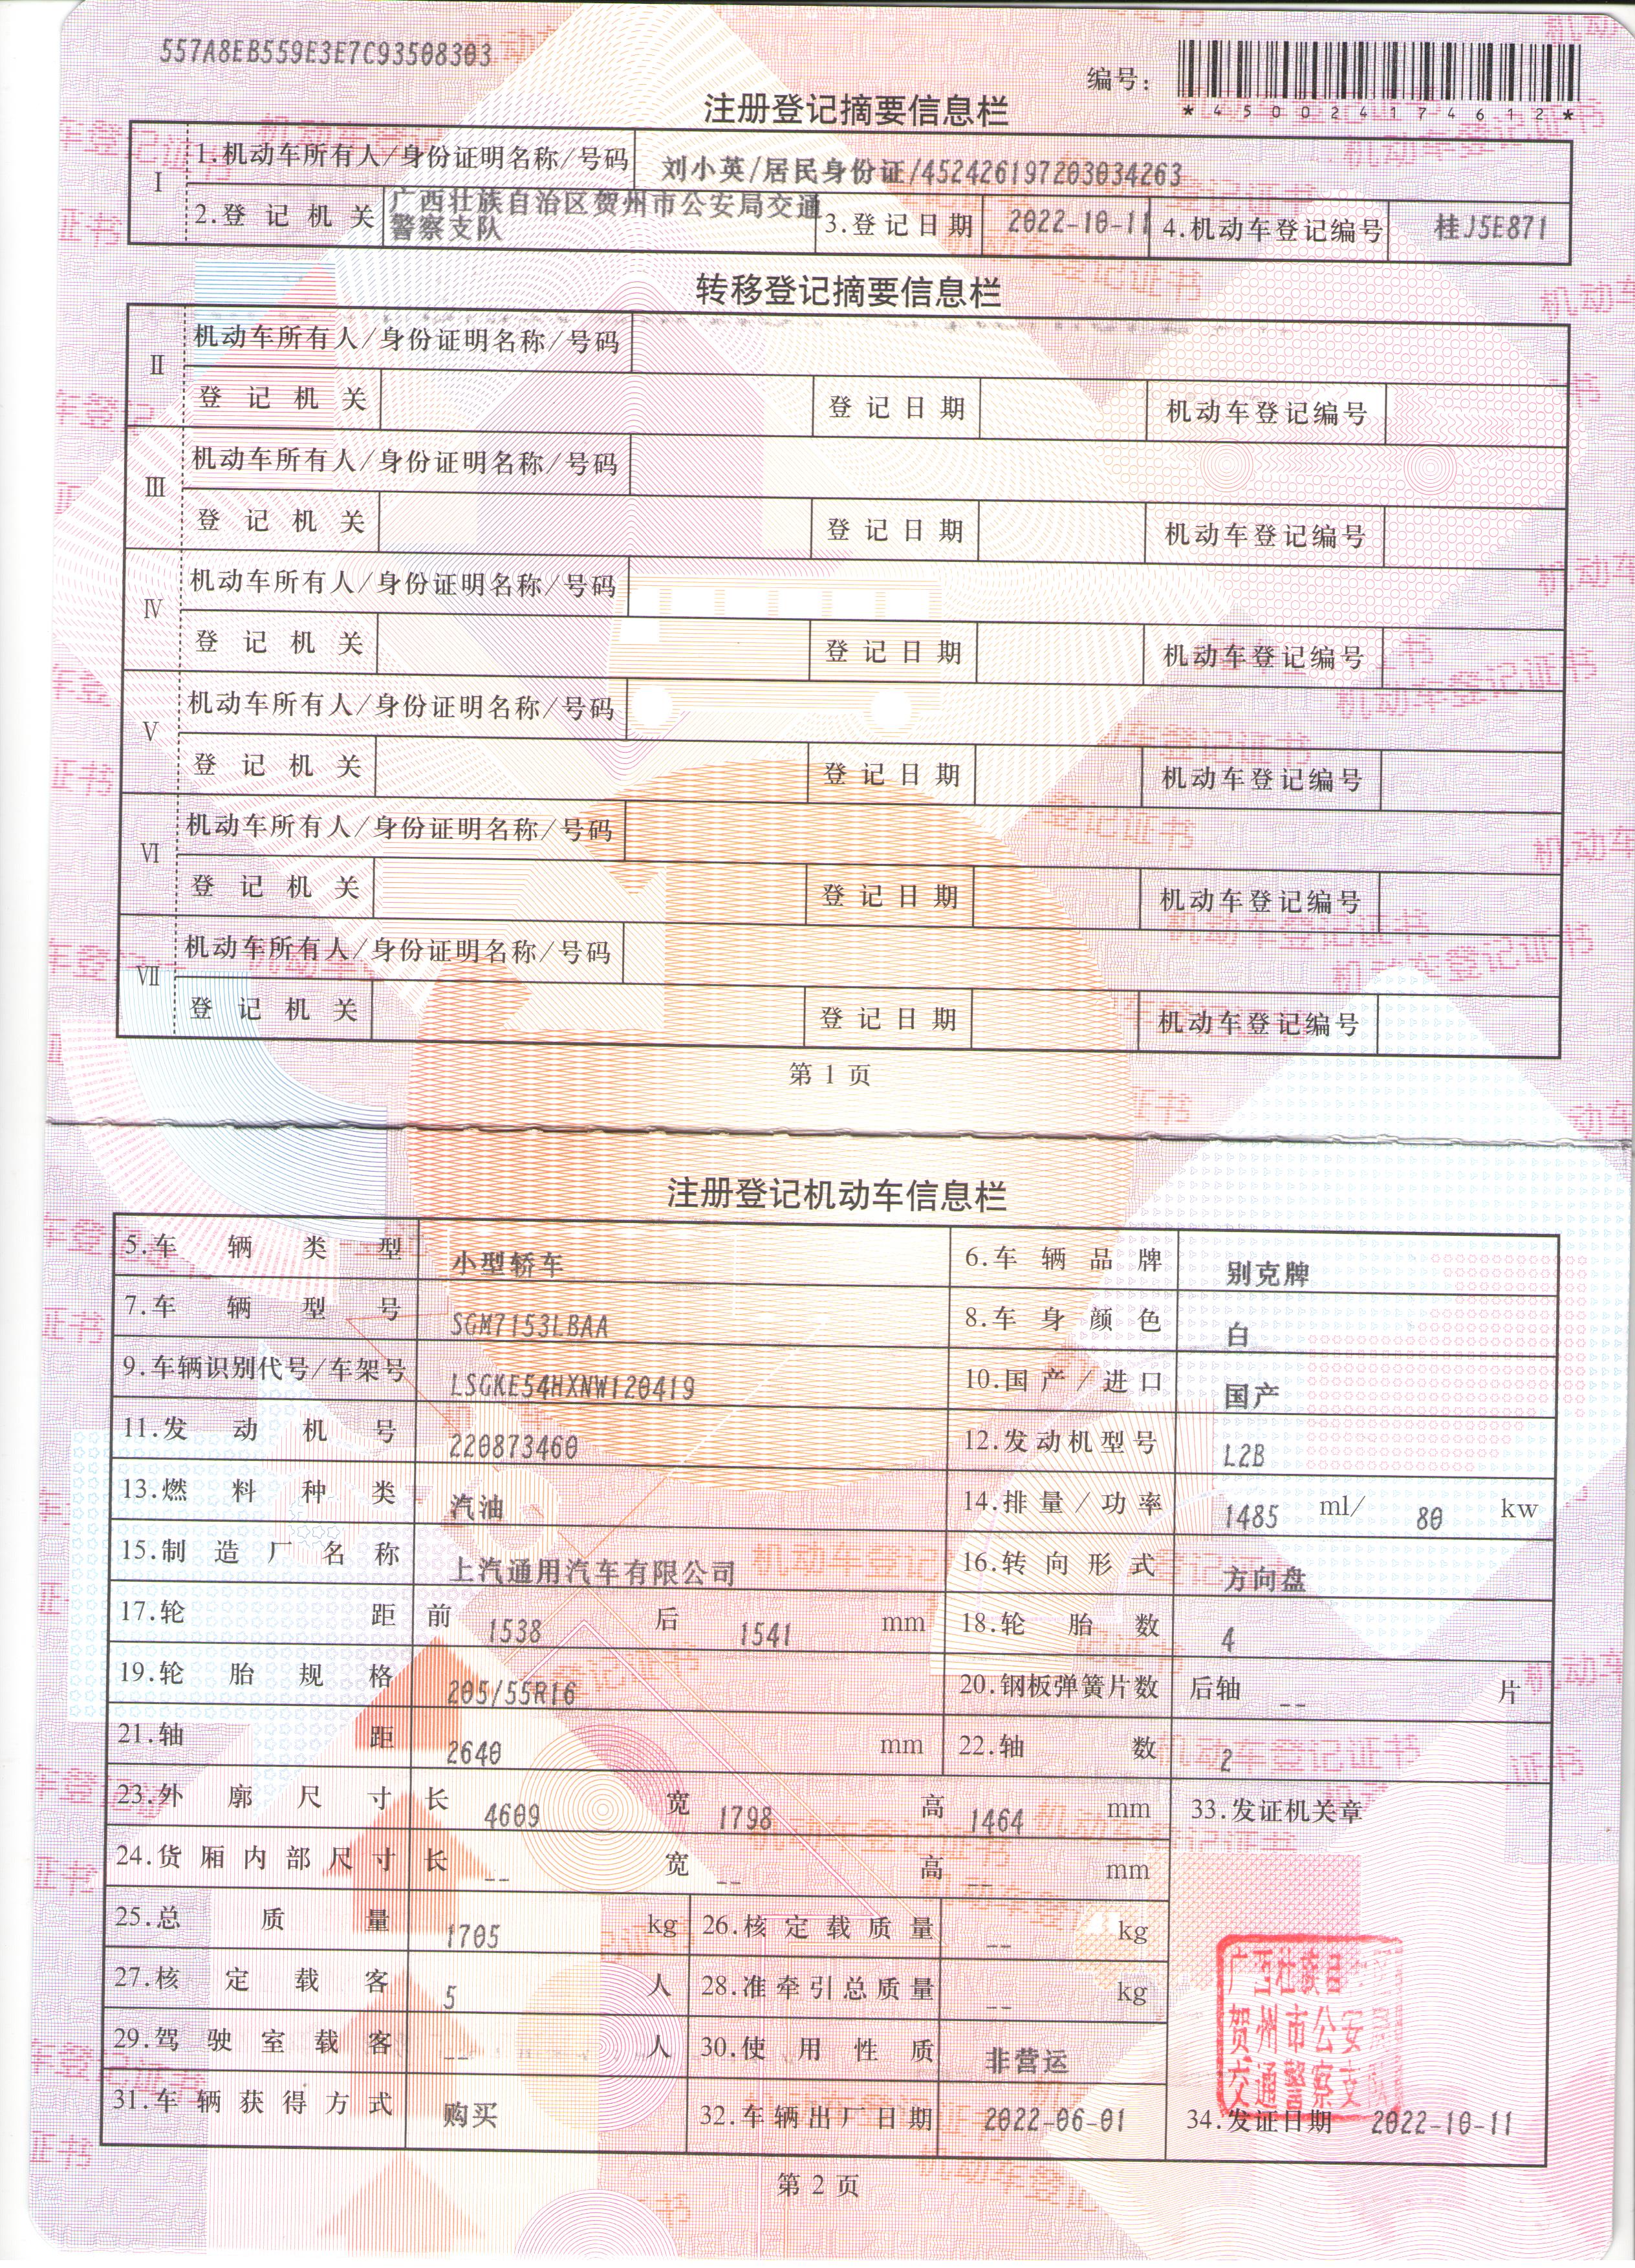 557A8EB559E3E7C93508303
编号：
*450024174612*
注册登记摘要信息栏
Ⅰ
1.机动车所有人/身份证明名称/号码 刘小英/居民身份证/452426197203034263
2.登记机关 广西壮族自治区贺州市公安局交通警察支队 3.登记日期 2022-10-11 4.机动车登记编号 桂J5E871
转移登记摘要信息栏
Ⅱ
机动车所有人/身份证明名称/号码
登记机关 登记日期 机动车登记编号
Ⅲ
机动车所有人/身份证明名称/号码
登记机关 登记日期 机动车登记编号
Ⅳ
机动车所有人/身份证明名称/号码
登记机关 登记日期 机动车登记编号
Ⅴ
机动车所有人/身份证明名称/号码
登记机关 登记日期 机动车登记编号
Ⅵ
机动车所有人/身份证明名称/号码
登记机关 登记日期 机动车登记编号
Ⅶ
机动车所有人/身份证明名称/号码
登记机关 登记日期 机动车登记编号
第 1 页
注册登记机动车信息栏
5.车辆类型 小型轿车 6.车辆品牌 别克牌
7.车辆型号 SGM7153LBAA 8.车身颜色 白
9.车辆识别代号/车架号 LSGKE54HXNW120419 10.国产/进口 国产
11.发动机号 220873460 12.发动机型号 L2B
13.燃料种类 汽油 14.排量/功率 1485 ml/ 80 kw
15.制造厂名称 上汽通用汽车有限公司 16.转向形式 方向盘
17.轮距 前 1538 后 1541 mm 18.轮胎数 4
19.轮胎规格 205/55R16 20.钢板弹簧片数 后轴 -- 片
21.轴距 2640 mm 22.轴数 2
23.外廓尺寸 长 4609 宽 1798 高 1464 mm 33.发证机关章
24.货厢内部尺寸 长 -- 宽 -- 高 mm
25.总质量 1705 kg 26.核定载质量 -- kg
27.核定载客 5 人 28.准牵引总质量 -- kg
29.驾驶室载客 -- 人 30.使用性质 非营运
31.车辆获得方式 购买 32.车辆出厂日期 2022-06-01 34.发证日期 2022-10-11
广西壮族自
贺州市公安
交通警察支
第 2 页